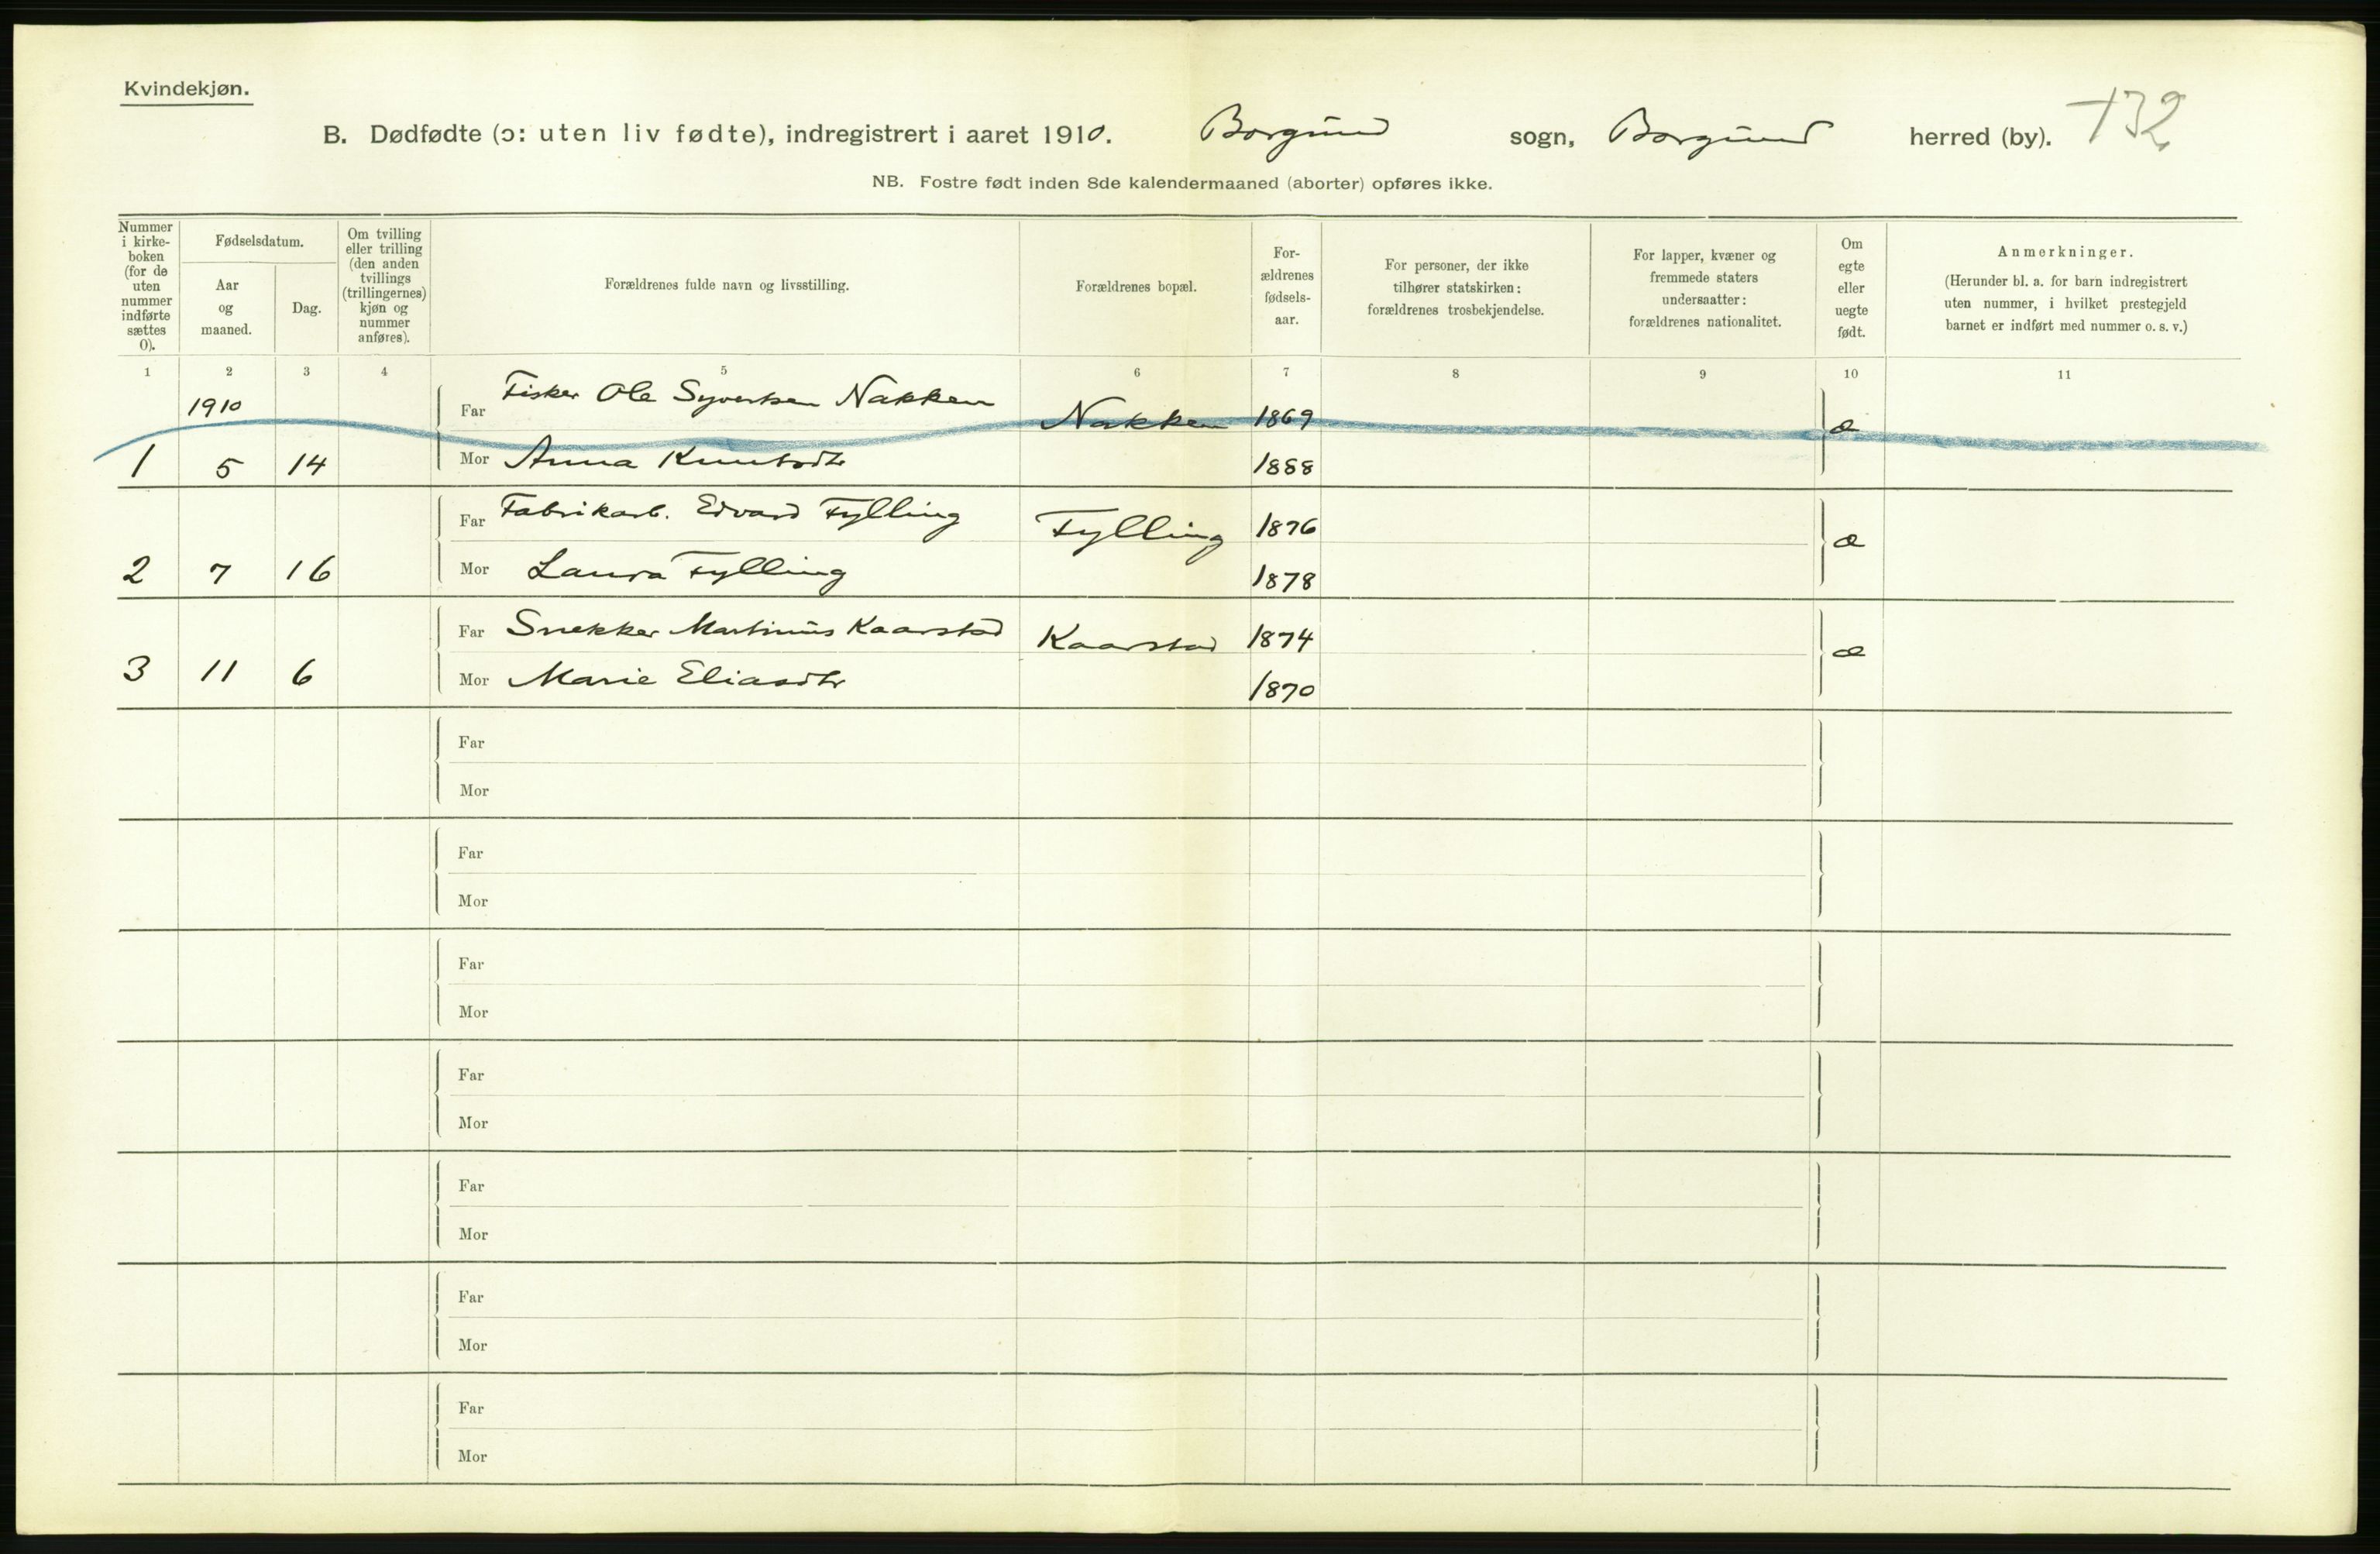 Kvindekjøn.
B. Dødfødte (ɔ: uten liv fødte), indregistrert i aaret 1910. Borgund sogn, Borgund herred (by). 132
NB. Fostre født inden 8de kalendermaaned (aborter) opføres ikke.
Nummer i kirke- boken (for de uten nummer indførte sættes 0).
Fødselsdatum.
Aar og maaned.
Dag.
Om tvilling eller trilling (den anden tvillings (trillingernes) kjøn og nummer anføres).
Forældrenes fulde navn og livsstilling.
Forældrenes bopæl.
For- ældrenes fødsels- aar.
For personer, der ikke tilhører statskirken: forældrenes trosbekjendelse.
For lapper, kvæner og fremmede staters undersaatter: forældrenes nationalitet.
Om egte eller uegte født.
Anmerkninger.
(Herunder bl. a. for barn indregistrert uten nummer, i hvilket prestegjeld barnet er indført med nummer o. s. v.)
1 2 3 4 5 6 7 8 9 10 11
1910 Far Fisker Ole Syvertsen Nakken Nakken 1869 æ
1 5 14 Mor Anna Knutsdtr 1888
Far Fabrikarb. Edvard Fylling Fylling 1876 æ
2 7 16 Mor Laura Fylling 1878
Far Snekker Martinus Kaarstad Kaarstad 1874 æ
3 11 6 Mor Marie Eliasdtr 1870
Far
Mor
Far
Mor
Far
Mor
Far
Mor
Far
Mor
Far
Mor
Far
Mor